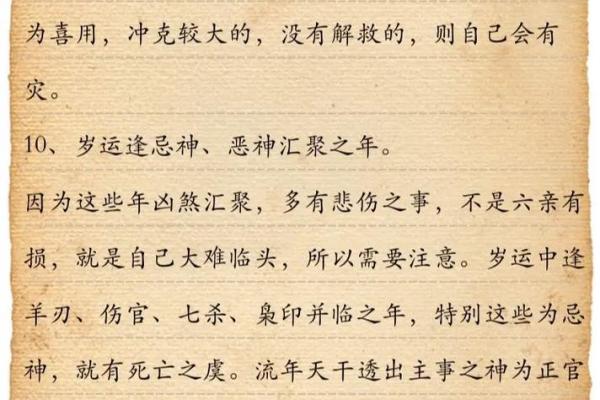 为喜用，冲克较大的，没有解救的，则自己会有
灾。
10、岁运逢忌神、恶神汇聚之年。
因为这些年凶煞汇聚，多有悲伤之事，不是六亲有
损，就是自己大难临头，所以需要注意。岁运中逢
羊刃、伤官、七杀、枭印并临之年，特别这些为忌
神，就有死亡之虞。流年天干透出主事之神为正官